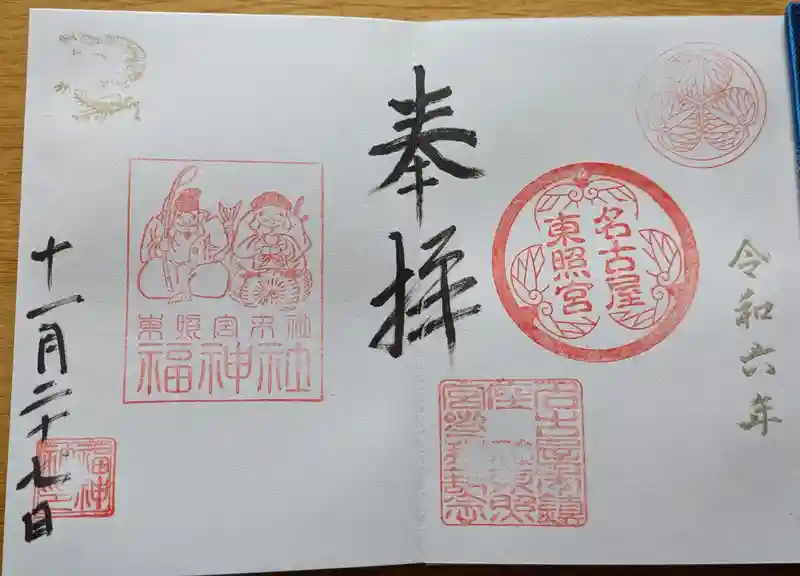 令和六年
名古屋
東照宮
奉拝
東照宮末社
福神社
福神
十一月二十七日